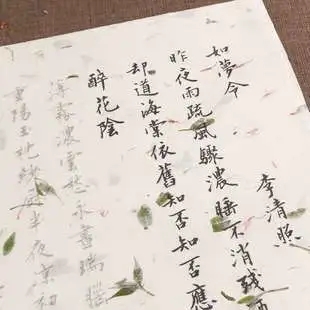 如夢令
李清照
昨夜雨疏風驟濃睡不消残
却道海棠依舊知否知否應
醉花陰
薄霧濃雲愁永晝瑞腦
重陽玉枕紗 半夜凉初